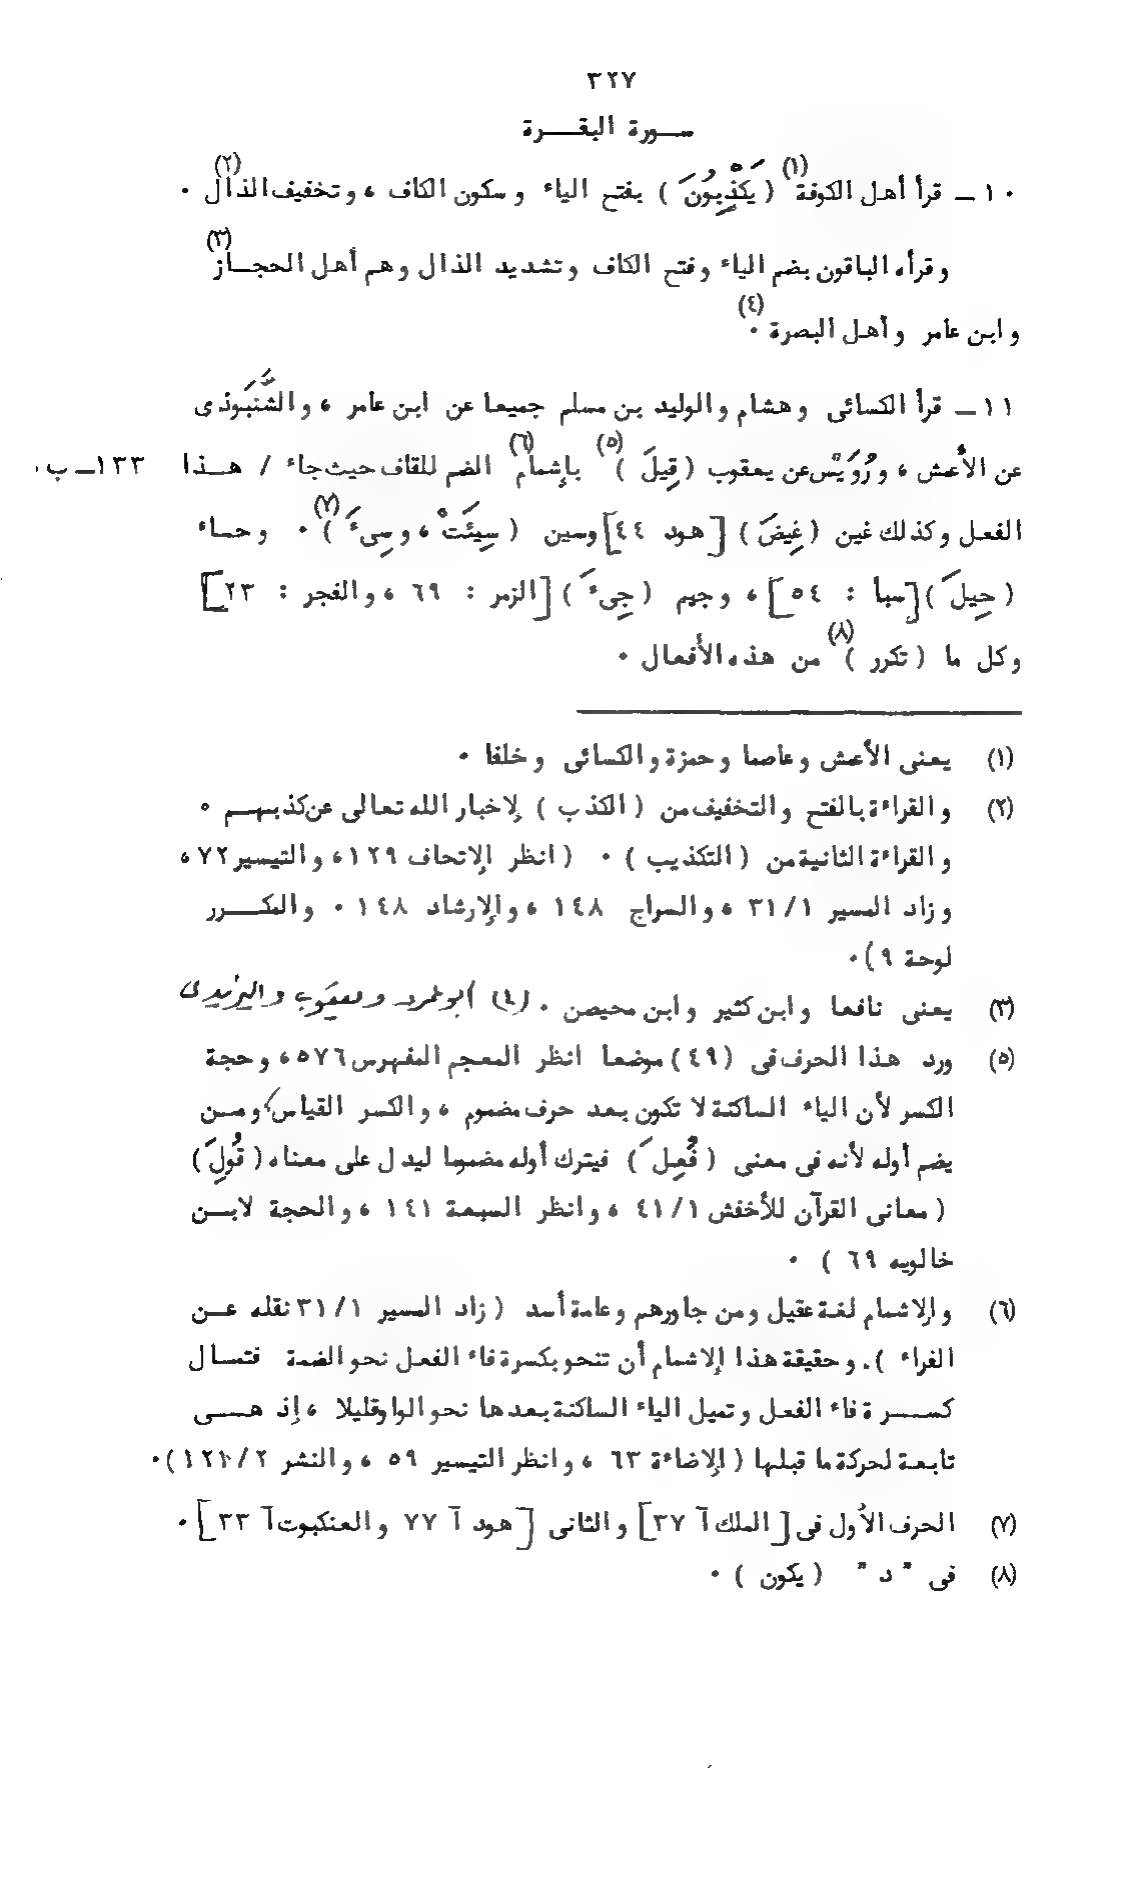 ٣٢٧
سورة البقرة
١٠ـ قرأ أهل الكوفة (١) ( يَكْذِبُونَ ) بفتح الياء وسكون الكاف ، وتخفيف الذال (٢) ٠
وقرأه الباقون بضم الياء وفتح الكاف وتشديد الذال وهم أهل الحجاز (٣)
وابن عامر وأهل البصرة (٤) ٠
١١ـ قرأ الكسائى وهشام والوليد بن مسلم جميعا عن ابن عامر ، والشَّنَبُوذى
عن الأعمش ، ورُوَيْس عن يعقوب ( قِيلَ ) (٥) بإشمام (٦) الضم للقاف حيث جاء / هذا ١٣٣ـ ب ٠
الفعل وكذلك غين ( غِيضَ ) [ هود ٤٤] وسين ( سِيئَتْ ، وسِىءَ ) (٧) ٠ وحاء
( حِيلَ ) [ سبأ : ٥٤ ] ، وجيم ( جِىءَ ) [ الزمر : ٦٩ ، والفجر : ٢٣ ]
وكل ما ( تكرر ) (٨) من هذه الأفعال ٠
(١) يعنى الأعمش وعاصما وحمزة والكسائى وخلفا ٠
(٢) والقراءة بالفتح والتخفيف من ( الكذب ) لإخبار الله تعالى عن كذبهم ٠
والقراءة الثانية من ( التكذيب ) ٠ ( انظر الإتحاف ١٢٩ ، والتيسير ٧٢ ،
وزاد المسير ٣١/١ ، والسراج ١٤٨ ، والإرشاد ١٤٨ ٠ والمكرر
لوحة ٩ ) ٠
(٣) يعنى نافعا وابن كثير وابن محيصن ٠ (٤) أبو عمرو ويعقوب واليزيدى
(٥) ورد هذا الحرف فى (٤٩) موضعا انظر المعجم المفهرس ٥٧٦ ، وحجة
الكسر لأن الياء الساكنة لا تكون بعد حرف مضموم ، والكسر القياس ، ومن
يضم أوله لأنه فى معنى ( فُعِلَ ) فيترك أوله مضموما ليدل على معناه ( قُولَ )
( معانى القرآن للأخفش ٤١/١ ، وانظر السبعة ١٤١ ، والحجة لابن
خالويه ٦٩ ) ٠
(٦) والإشمام لغة عقيل ومن جاورهم وعامة أسد ( زاد المسير ٣١/١ نقله عن
الفراء ). وحقيقة هذا الإشمام أن تنحو بكسرة فاء الفعل نحو الضمة فتمال
كسرة فاء الفعل وتميل الياء الساكنة بعدها نحو الواو قليلا ، إذ هى
تابعة لحركة ما قبلها ( الإضاءة ٦٣ ، وانظر التيسير ٥٩ ، والنشر ١٢١/٢ ) ٠
(٧) الحرف الأول فى [ الملك آ ٢٧ ] والثانى [ هود آ ٧٧ والعنكبوت آ ٣٣ ] ٠
(٨) فى " د " ( يكون ) ٠